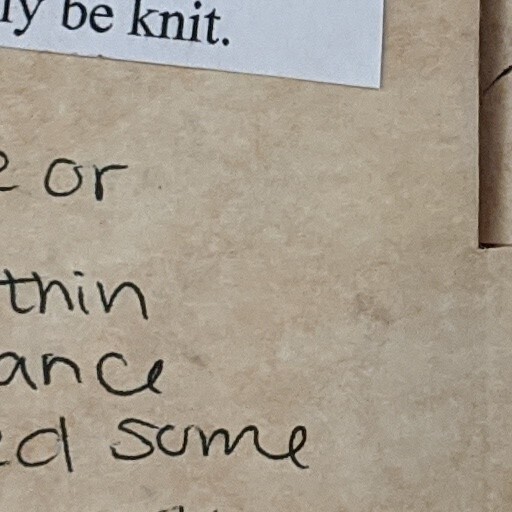 ly be knit.
e or
thin
ance
ed some